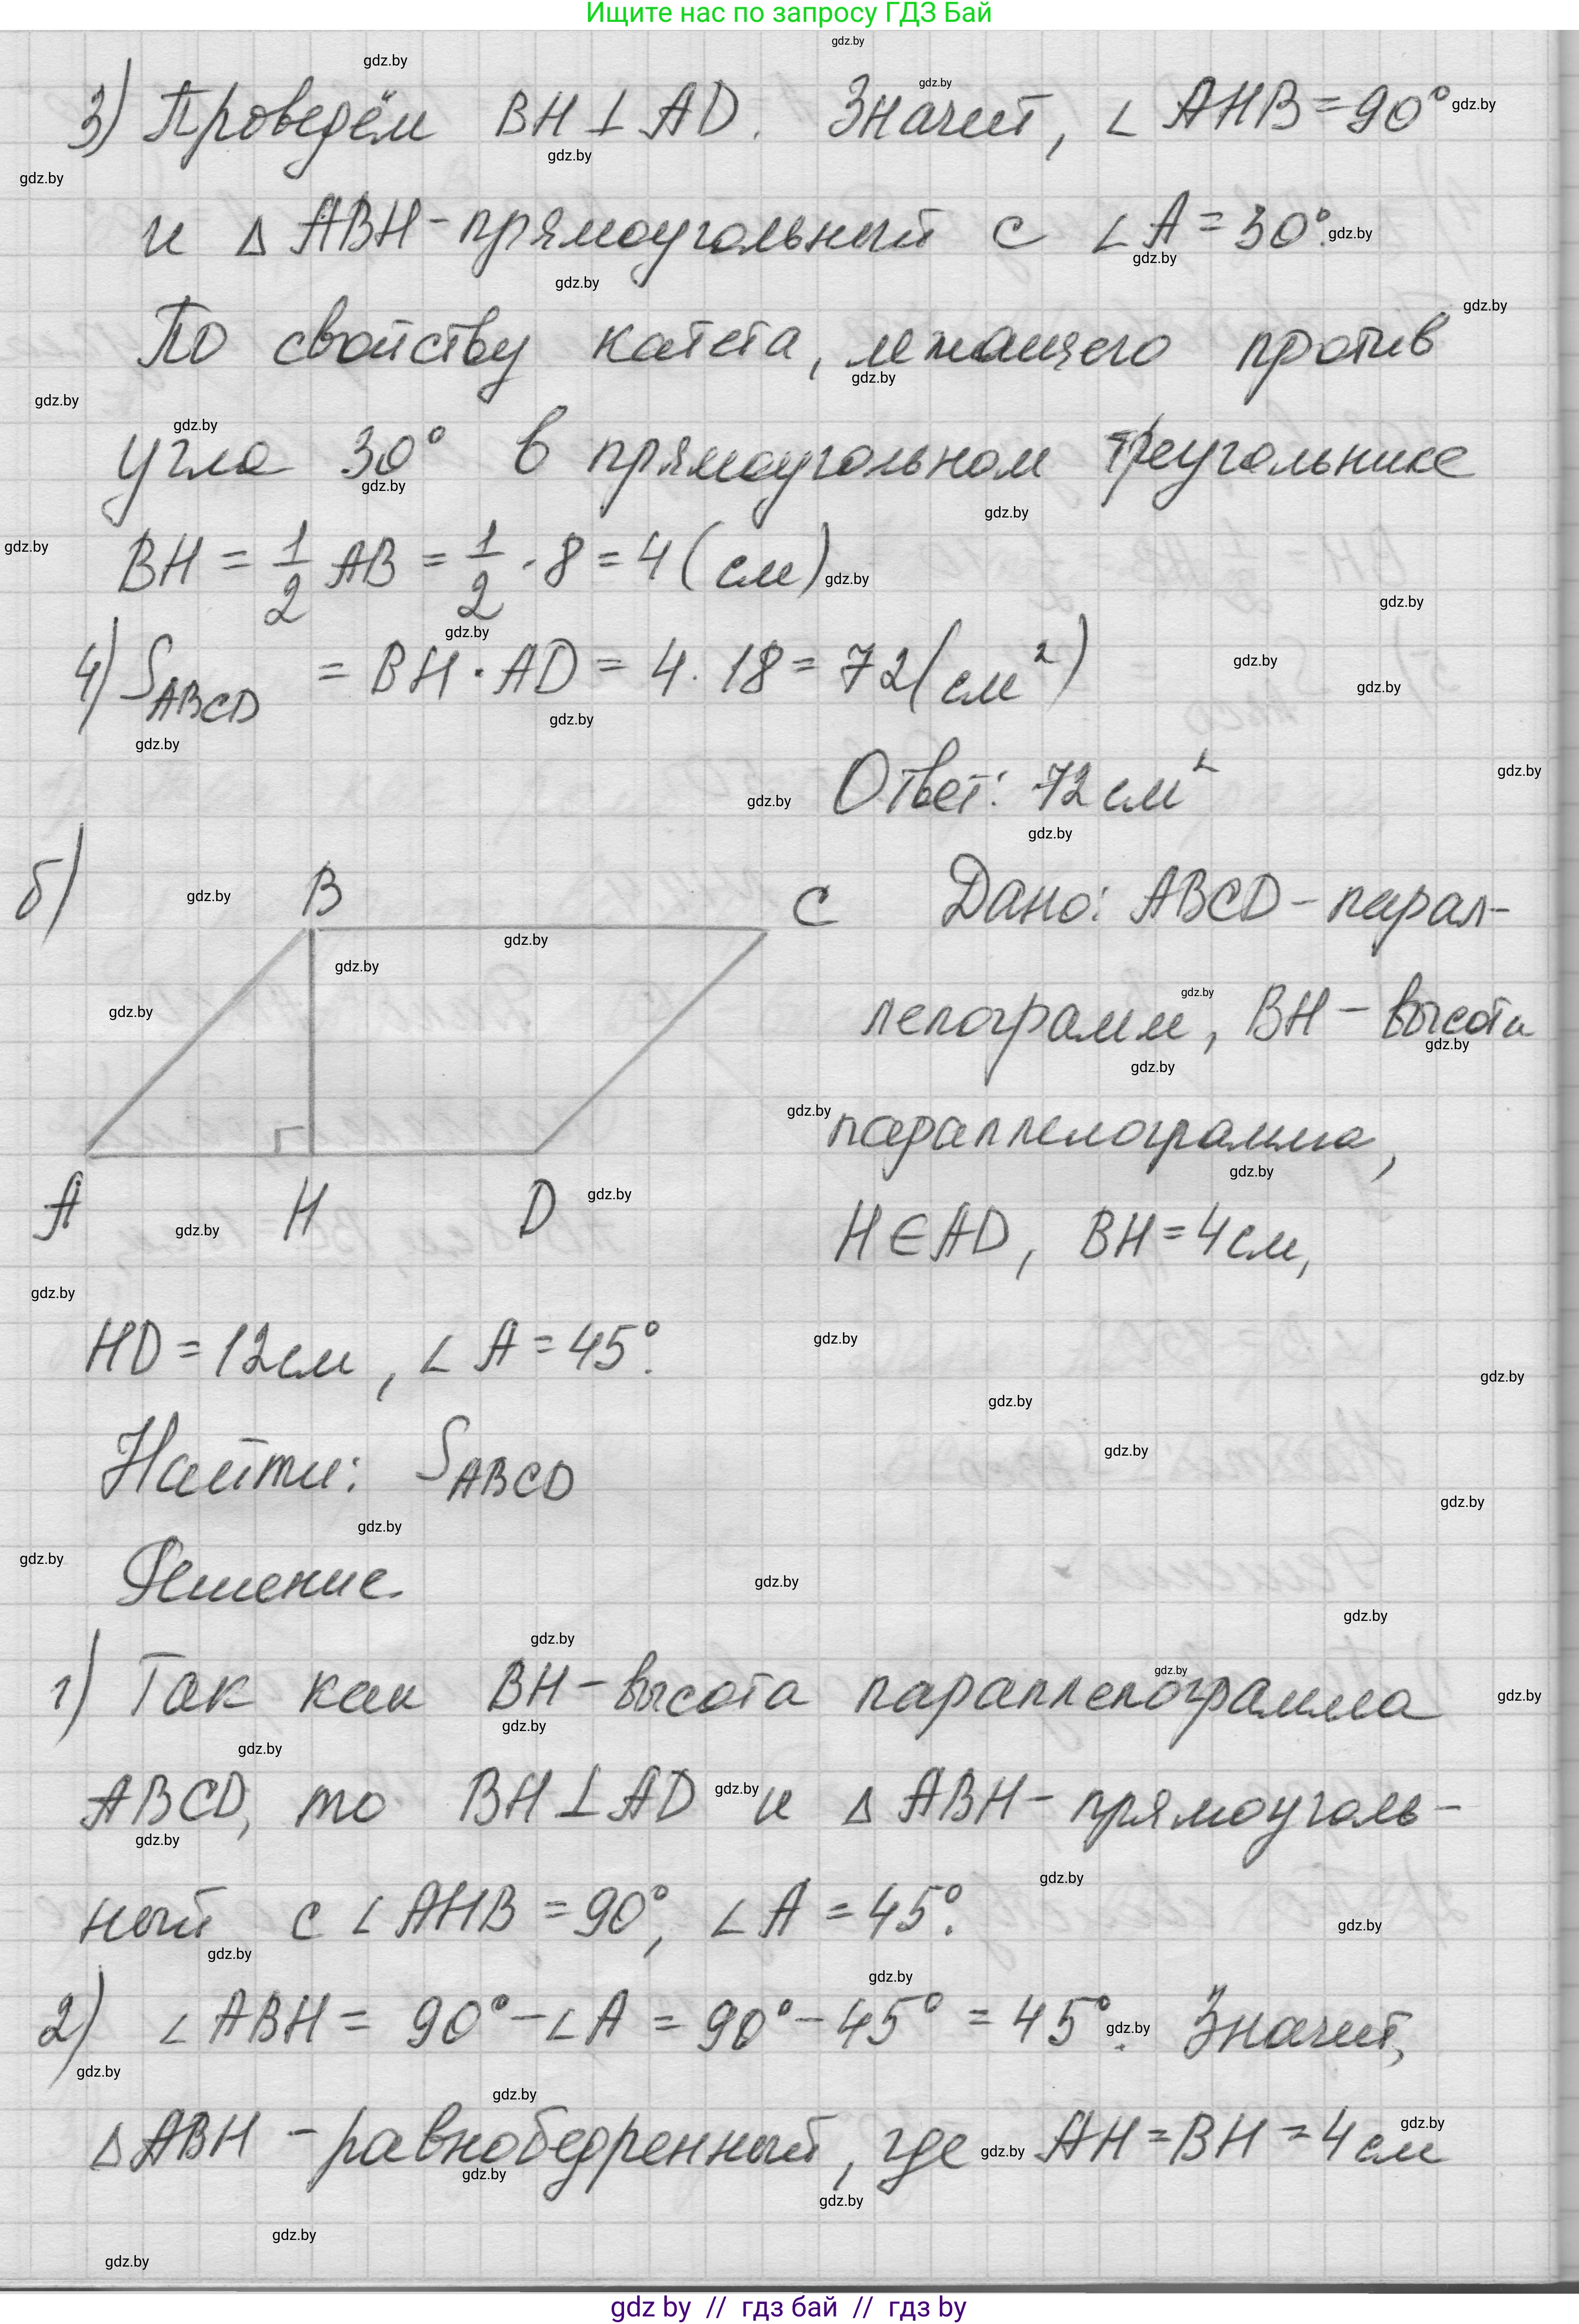 Ищите нас по запросу ГДЗ Бай
3) Проведём BH ⊥ AD. Значит, ∠ AHB = 90°
и △ ABH - прямоугольный с ∠ A = 30°.
По свойству катета, лежащего против
угла 30° в прямоугольном треугольнике
BH = 1/2 AB = 1/2 · 8 = 4 (см)
4) S ABCD = BH · AD = 4 · 18 = 72 (см²)
Ответ: 72 см²
б)
B
C
A
H
D
Дано: ABCD - парал-
лелограмм, BH - высота
параллелограмма,
H ∈ AD, BH = 4 см,
HD = 12 см, ∠ A = 45°.
Найти: S ABCD
Решение.
1) Так как BH - высота параллелограмма
ABCD, то BH ⊥ AD и △ ABH - прямоуголь-
ный с ∠ AHB = 90°, ∠ A = 45°.
2) ∠ ABH = 90° - ∠ A = 90° - 45° = 45°. Значит,
△ ABH - равнобедренный, где AH = BH = 4 см
gdz by // гдз бай // гдз by